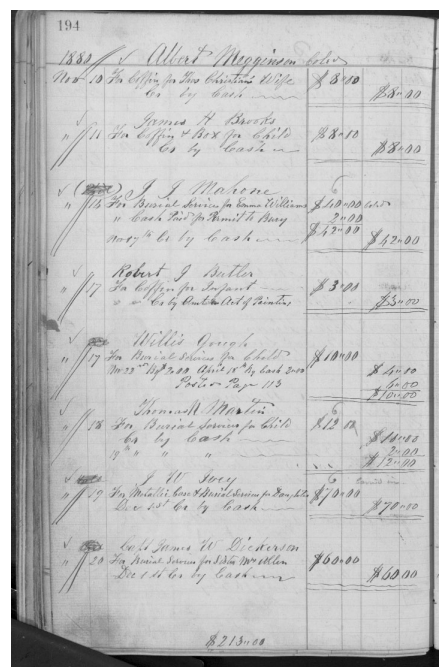 194
1880 Albert Megginson Cold
Nov 10 For Coffin for Thos Christians Wife $8.00
Cr by Cash $8.00
James A Brooks
" 11 For Coffin & Box for Child $8.00
Cr by Cash $8.00
J J Mahone
" 16 For Burial Services for Emma Williams $40.00 Cold
" Cash Paid for Permit to Bury 2.00
$42.00
Nov 17th Cr by Cash $42.00
Robert J Butler
" 17 For Coffin for Infant $3.00
" " Cr by Amt on Act of Painting $3.00
Willis Gough
" 17 For Burial Services for Child $10.00
Nov 22nd By $2.00 April 18th By Cash 2.00 $4.00
Posted Page 113 6.00
$10.00
Thomas Martin
" 18 For Burial Services for Child $12.00
Cr by Cash $10.00
19th " " " 2.00
$12.00
J W Ivey
" 19 For Metallic Case & Burial Services for Daughter $70.00
Dec 1st Cr by Cash $70.00
Capt James W Dickerson
" 20 For Burial Services for Sister Mrs Allen $60.00
Dec 1st Cr by Cash $60.00
$213.00